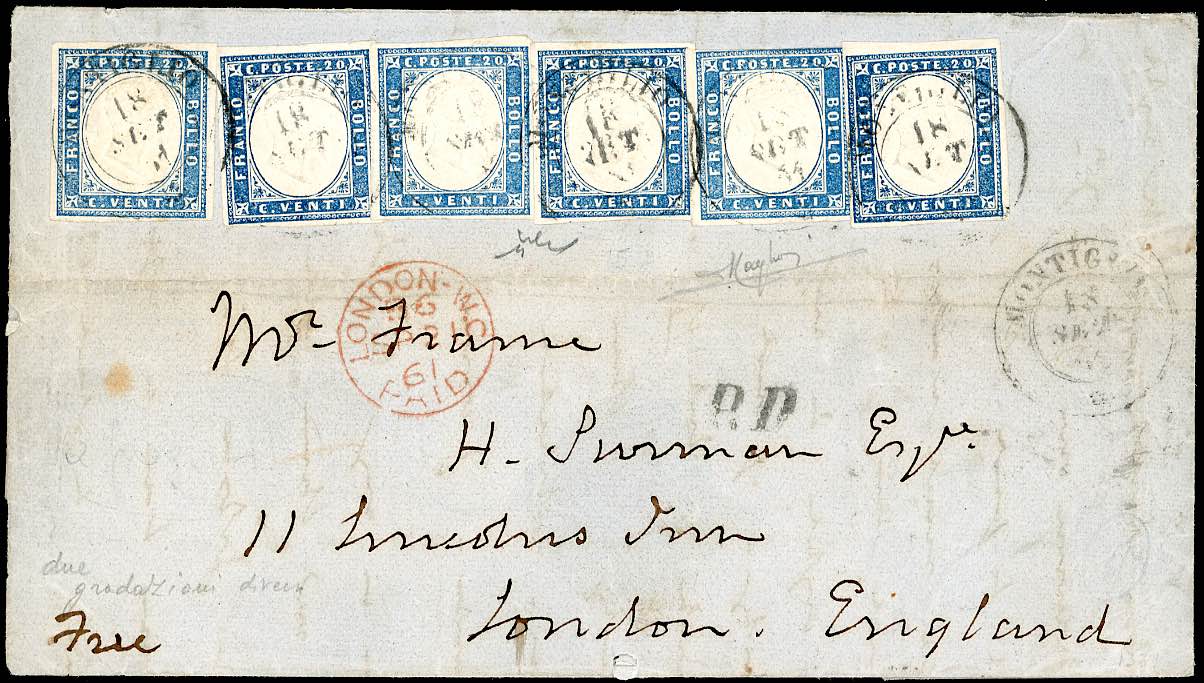 C. POSTE. 20 C. POSTE. 20 C. POSTE. 20 C. POSTE. 20 C. POSTE. 20 C. POSTE. 20
FRANCO BOLLO FRANCO BOLLO FRANCO BOLLO FRANCO BOLLO FRANCO BOLLO FRANCO BOLLO
18 SET 18 SET 18 SET 18 SET
C. VENTI C. VENTI C. VENTI C. VENTI C. VENTI C. VENTI
LONDON-W.C
61
PAID
18
SET
Mr. Frame
P.D.
H. Surman Esqre
11 Lincolns Inn
London. England
due
gradazioni diverse
Free